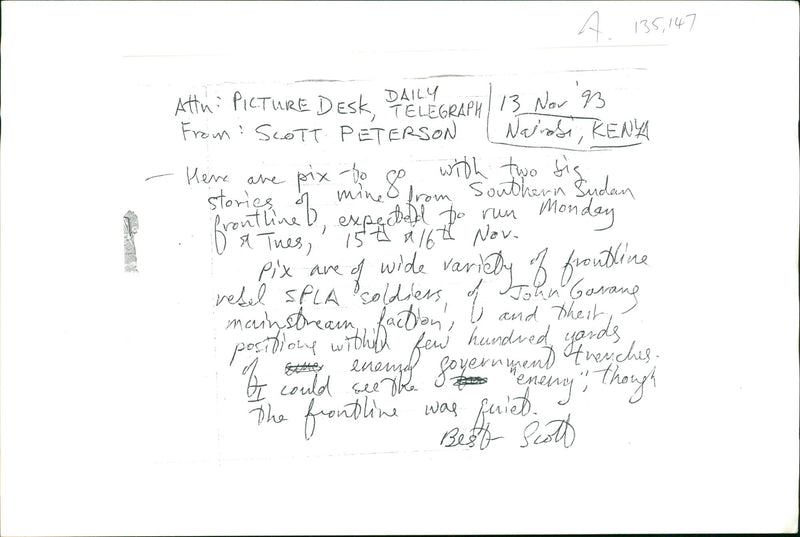 A. 135,147
Attn: PICTURE DESK, DAILY TELEGRAPH
13 Nov '93
From: SCOTT PETERSON
Nairobi, KENYA
— Here are pix to go with two big
stories of mine from Southern Sudan
frontline, expected to run Monday
& Tues, 15th & 16th Nov.
Pix are of wide variety of frontline
rebel SPLA soldiers, of John Garang
mainstream faction, and their
positions within few hundred yards
of enemy government trenches.
I could see the "enemy", though
the frontline was quiet.
Best Scott